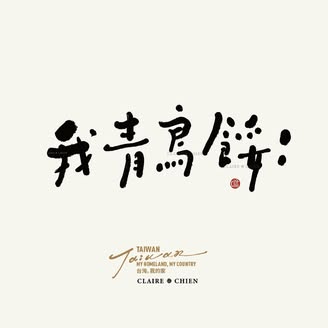 我青鳥餒:
TAIWAN
Taiwan
MY HOMELAND, MY COUNTRY
台灣, 我的家
CLAIRE CHIEN